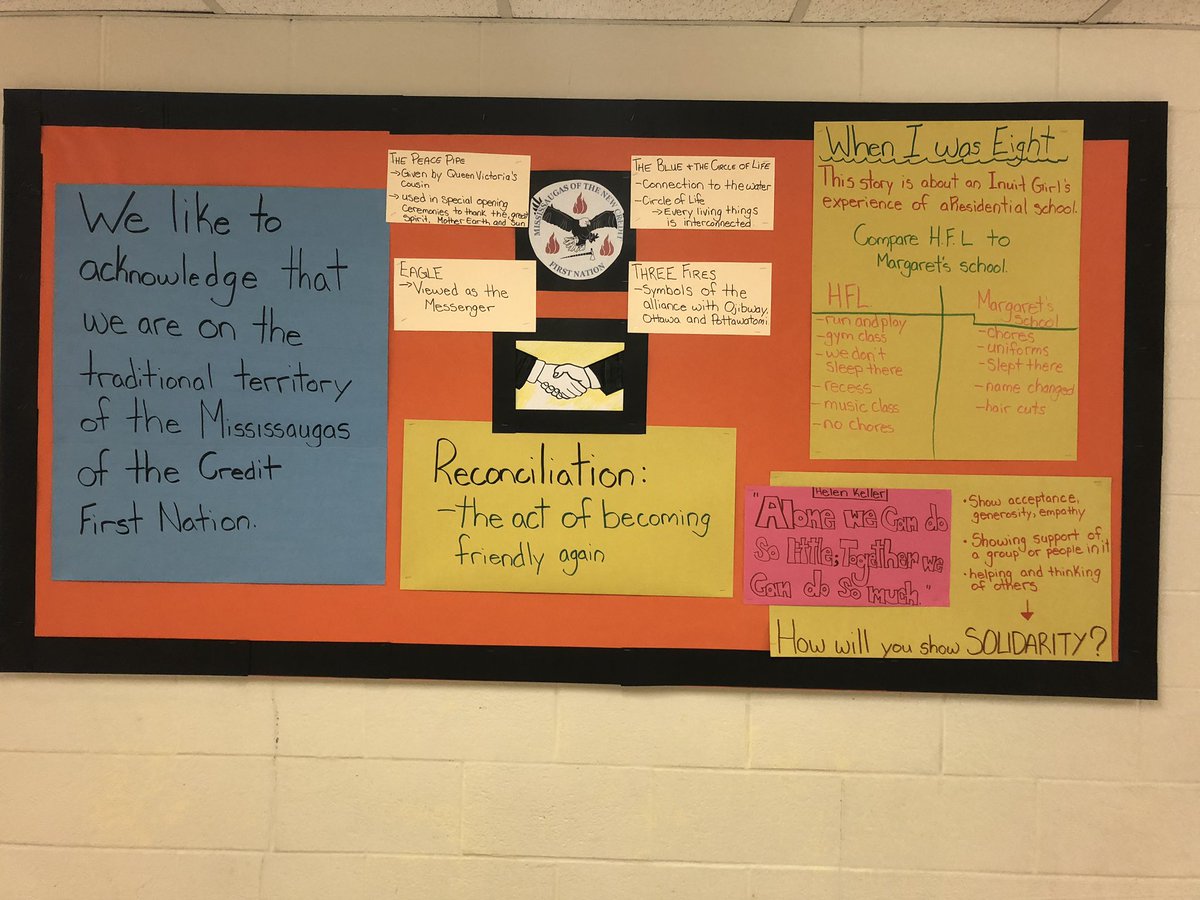 We like to
acknowledge that
we are on the
traditional territory
of the Mississaugas
of the Credit
First Nation.
THE PEACE PIPE
→ Given by Queen Victoria's
cousin
→ used in special opening
ceremonies to thank the great
spirit, Mother Earth and Sun
MISSISSAUGAS OF THE NEW CREDIT
FIRST NATION
THE BLUE + THE CIRCLE OF LIFE
- Connection to the water
- Circle of Life
→ Every living things
is interconnected
EAGLE
→ Viewed as the
Messenger
THREE FIRES
- Symbols of the
alliance with Ojibway,
Ottawa and Pottawatomi
Reconciliation:
- the act of becoming
friendly again
When I was Eight
This story is about an Inuit Girl's
experience of a Residential school.
Compare H.F.L to
Margaret's school.
HFL
- run and play
- gym class
- we don't
sleep there
- recess
- music class
- no chores
Margaret's
school
- chores
- uniforms
- slept there
- name changed
- hair cuts
Helen Keller
"Alone we can do
so little, Together we
can do so much."
• Show acceptance,
generosity, empathy
• Showing support of
a group or people in it
• helping and thinking
of others
↓
How will you show SOLIDARITY?